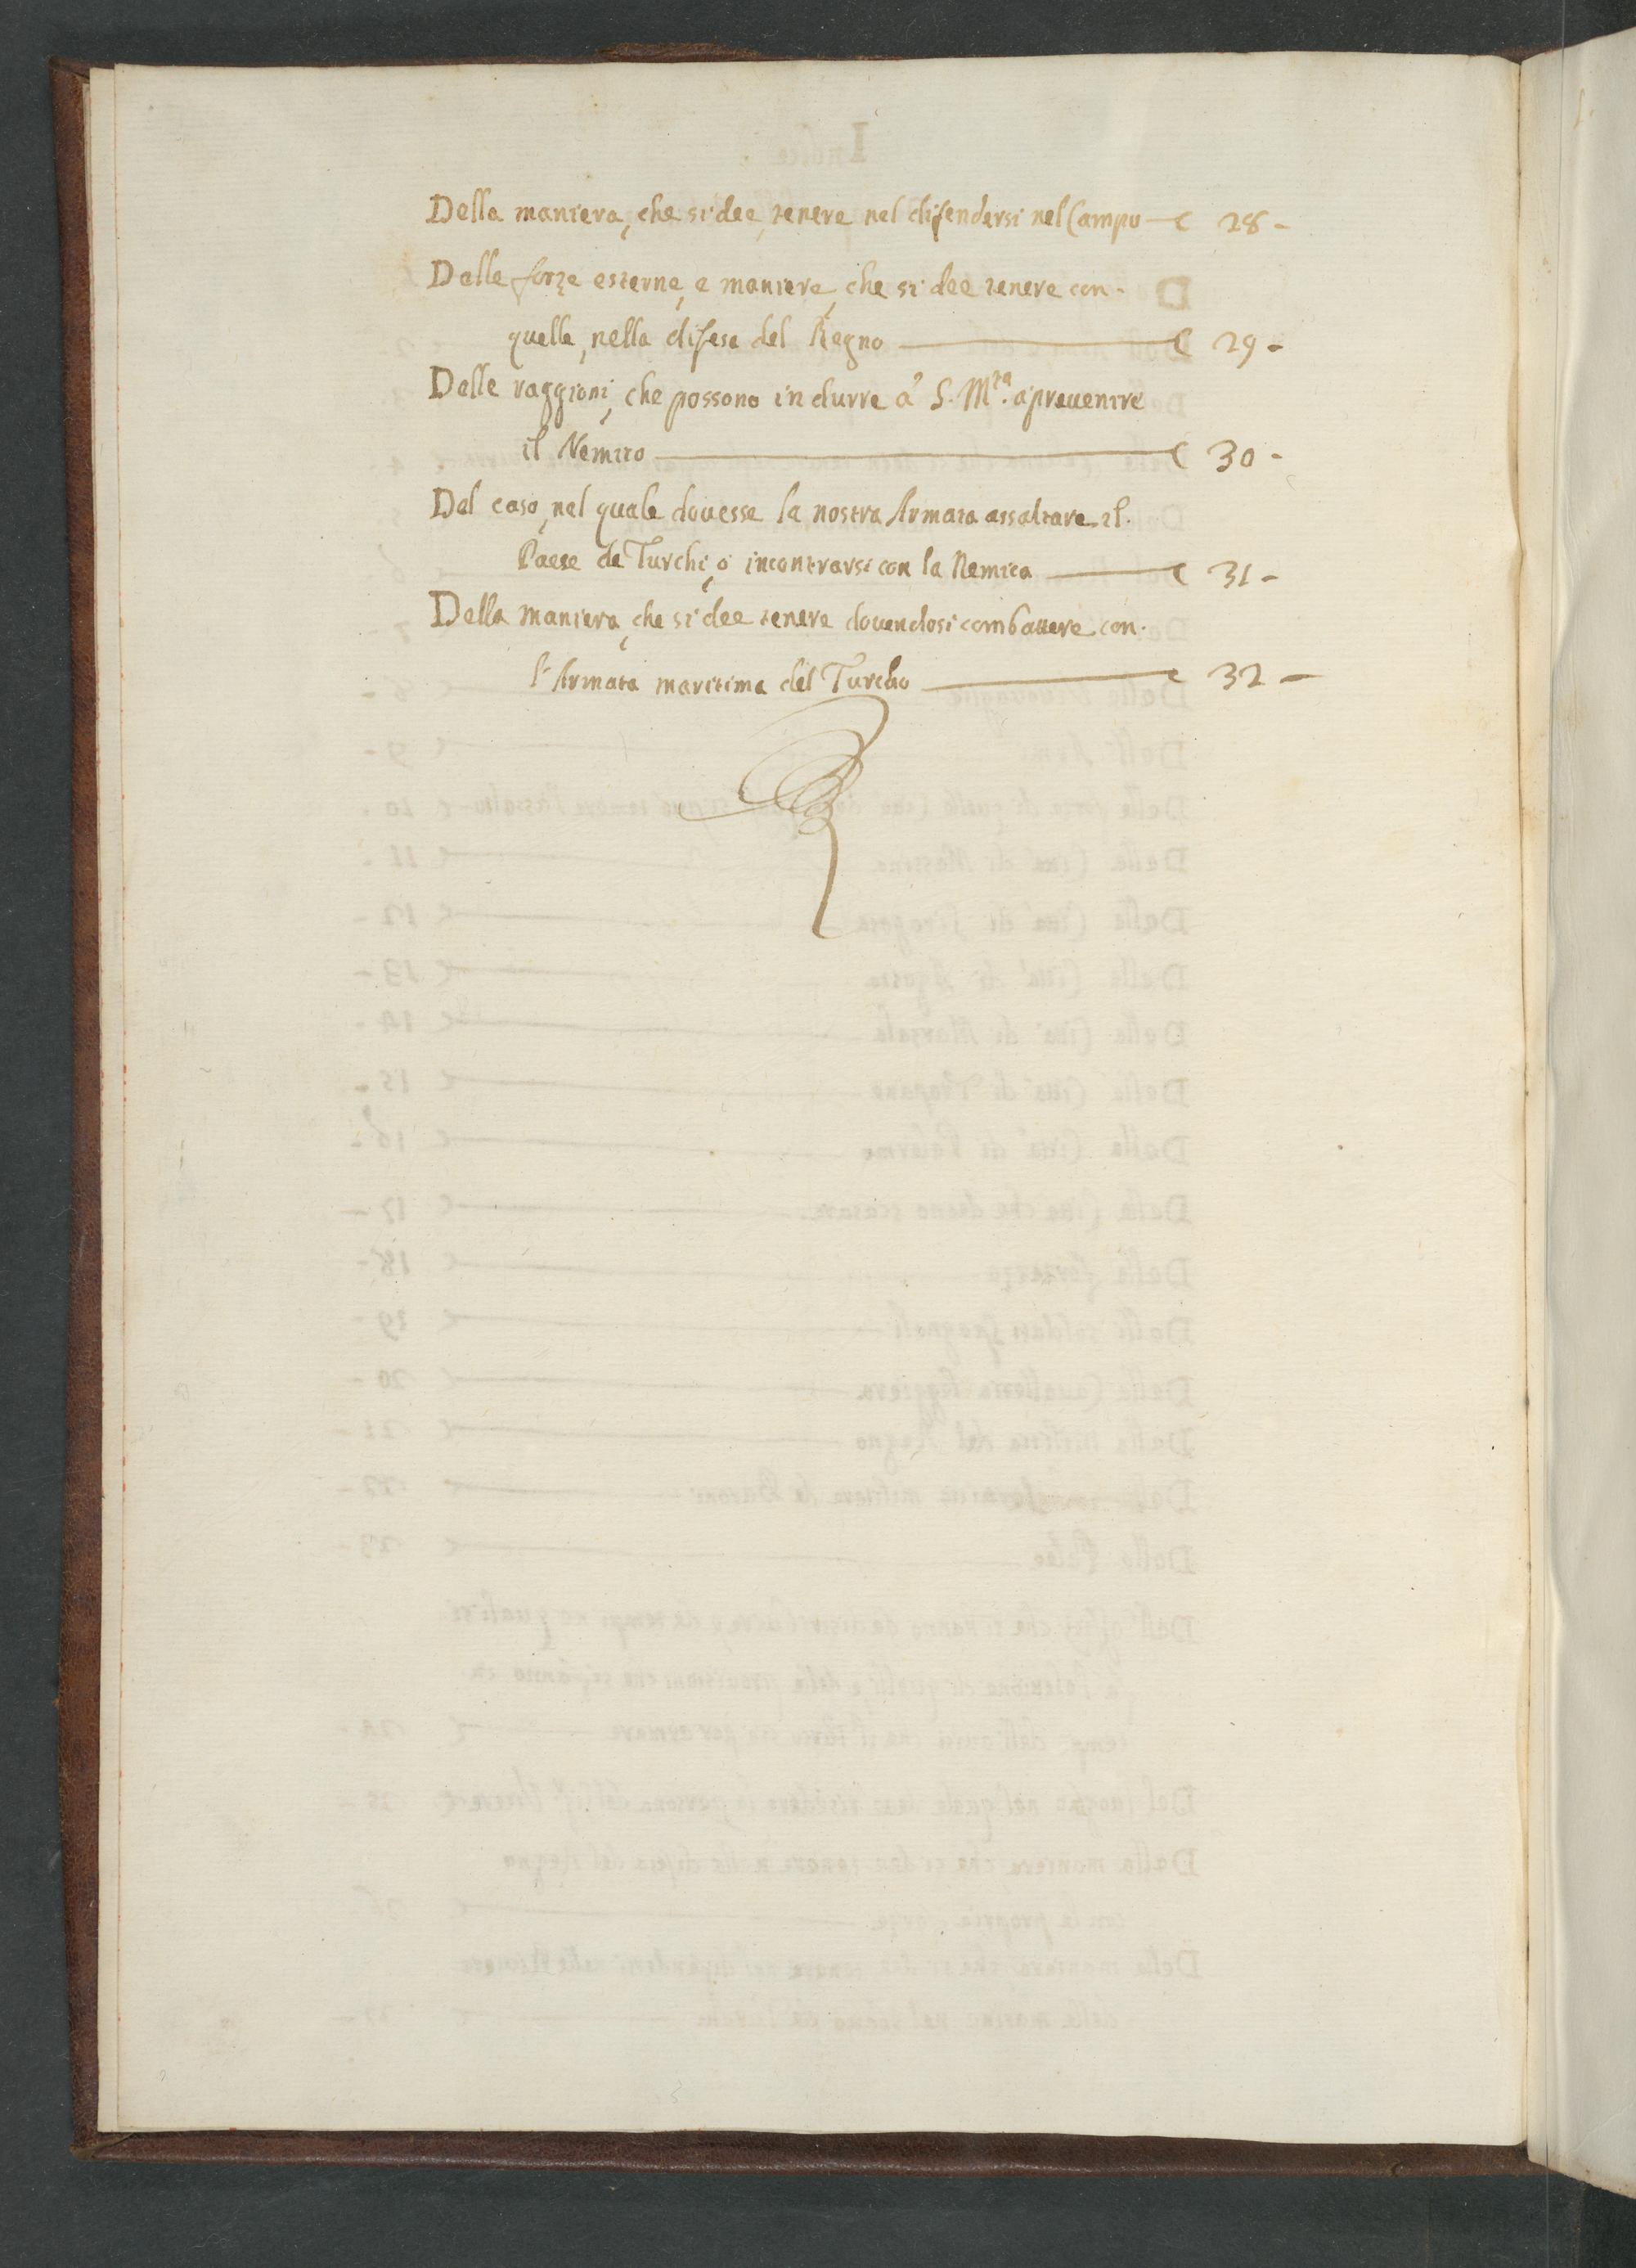 Della maniera, che si dee, tenere nel difendersi nel Campo — c 28 -
Delle forze esterne, e maniere, che si dee tenere con.
quelle, nella difesa del Regno — C 29 -
Delle raggioni, che possono indurre à S. M.tà à prevenire
il Nemico — C 30 -
Del caso, nel quale dovesse la nostra Armata assaltare il.
Paese de Turchi, ò incontrarsi con la Nemica — c 31 -
Della maniera, che si dee tenere dovendosi combattere con.
l'Armata maritima del Turcho — c 32 -